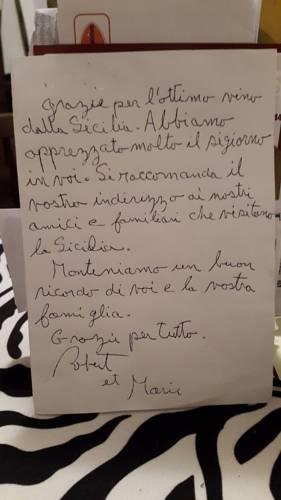 Grazie per l'ottimo vino
dalla Sicilia. Abbiamo
apprezzato molto il sigiorno
in voi. Si raccomanda il
vostro indirizzo ai nostri
amici e familiari che visitano
la Sicilia.
Monteniamo un buon
ricordo di voi e la vostra
famiglia.
Grazie per tutto.
Robert
et Marie